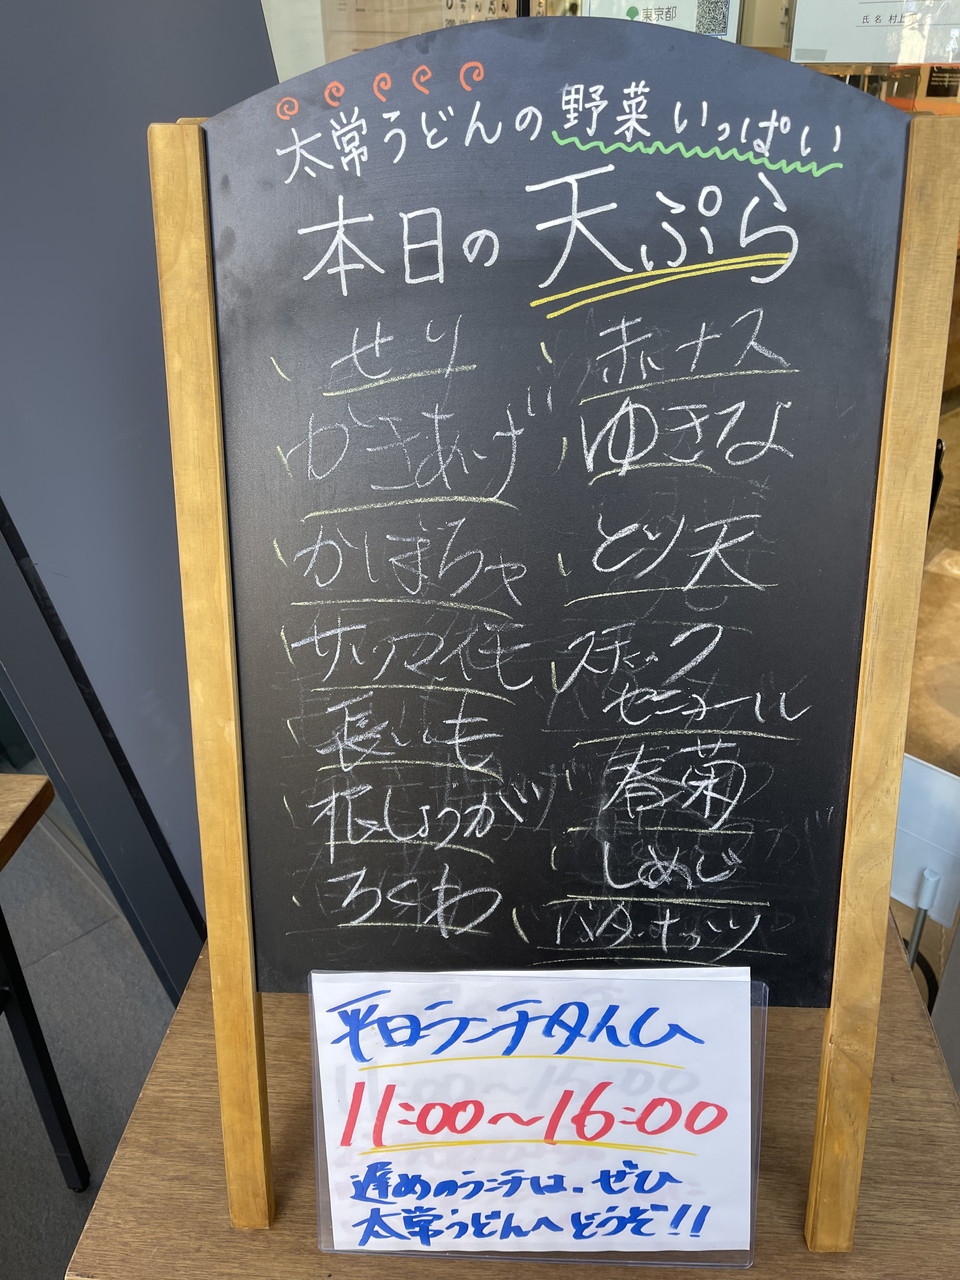 東京都
氏名 村上
太常うどんの野菜いっぱい
本日の天ぷら
せり
かきあげ
かぼちゃ
サツマイモ
長いも
根しょうが
ちくわ
赤ナス
ゆきな
とり天
スチック
セニョール
春菊
しめじ
バターナッツ
平日ランチタイム
11:00〜16:00
遅めのランチは、ぜひ
太常うどんへどうぞ!!